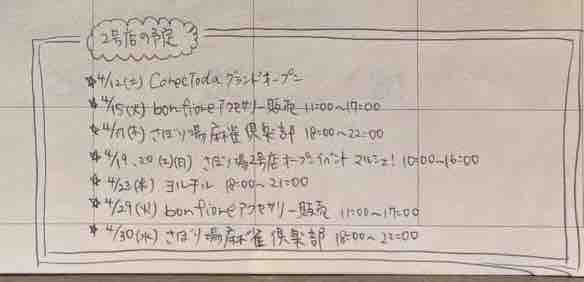 2号店の予定
☆4/12(土) CorecToda グランドオープン
☆4/15(火) bonfioreアクセサリー販売 11:00〜17:00
☆4/17(木) さぼり場麻雀倶楽部 18:00〜22:00
☆4/19、20(土)(日) さぼり場2号店オープンイベント マルシェ! 10:00〜16:00
☆4/23(水) ヨルテル 18:00〜21:00
☆4/29(火) bonfioreアクセサリー販売 11:00〜17:00
☆4/30(水) さぼり場麻雀倶楽部 18:00〜22:00